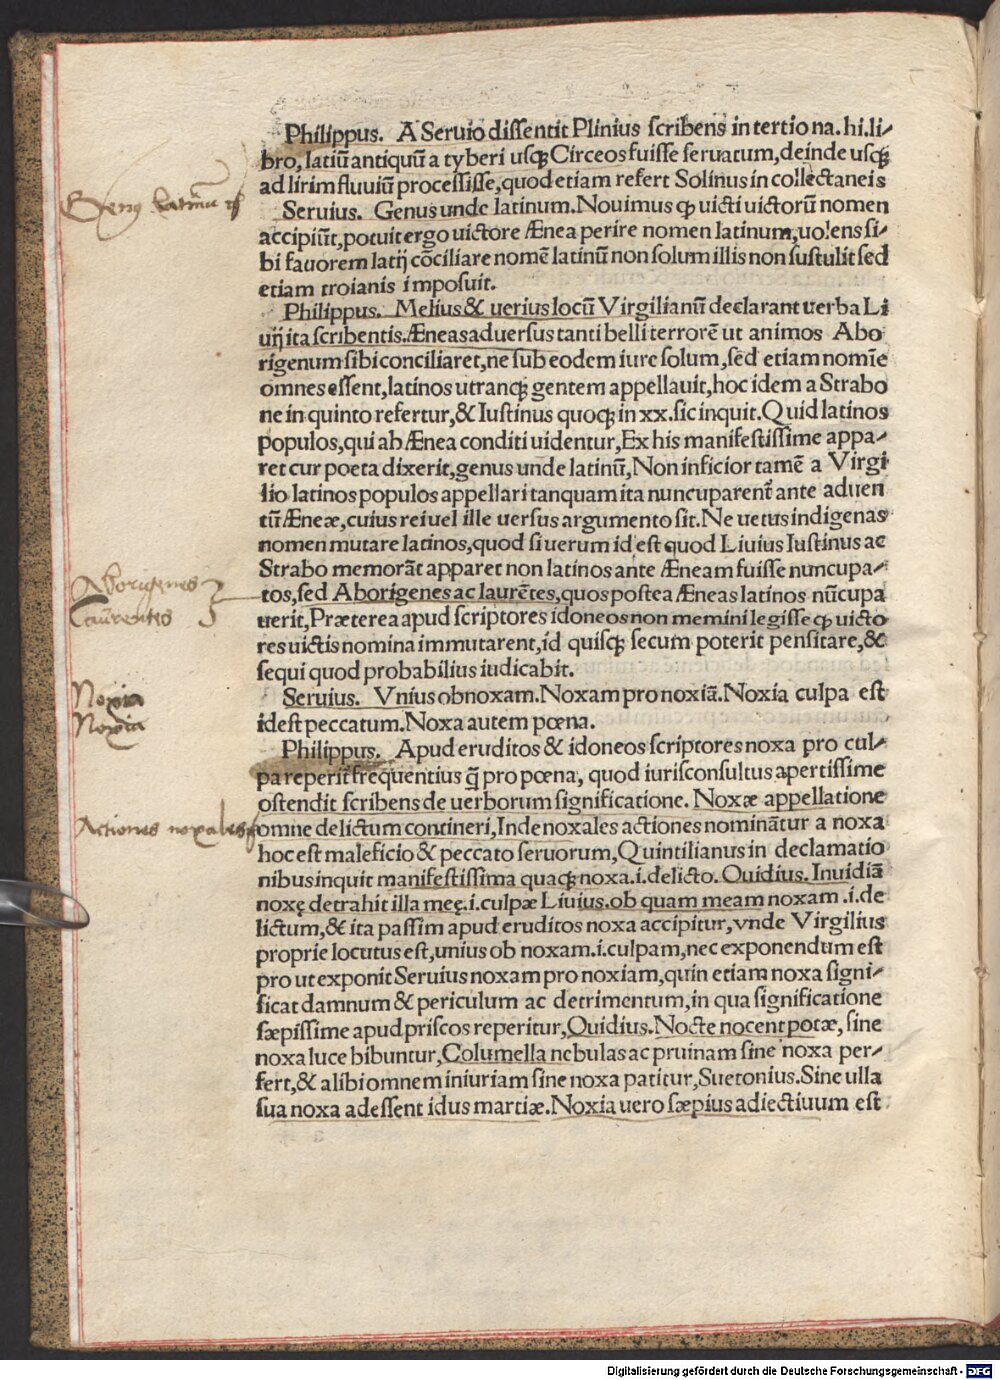 Philippus. A Seruio dissentit Plinius scribens in tertio na. hi. li/
bro, latiū antiquū a tyberi usqꝫ Circeos fuisse seruatum, deinde usqꝫ
ad lirim fluuiū processisse, quod etiam refert Solinus in collectaneis
Genus latinum
Seruius. Genus unde latinum. Nouimus ꝙ uicti uictorū nomen
accipiūt, potuit ergo uictore Ænea perire nomen latinum, uolens si/
bi fauorem latij cōciliare nomē latinū non solum illis non sustulit sed
etiam troianis imposuit.
Philippus. Melius & uerius locū Virgilianū declarant uerba Li
uij ita scribentis. Æneas aduersus tanti belli terrorē ut animos Abo
rigenum sibi conciliaret, ne sub eodem iure solum, sed etiam nomīe
omnes essent, latinos utranqꝫ gentem appellauit, hoc idem a Strabo
ne in quinto refertur, & Iustinus quoqꝫ in xx. sic inquit. Quid latinos
populos, qui ab Ænea conditi uidentur, Ex his manifestissime appa/
ret cur poeta dixerit, genus unde latinū, Non inficior tamē a Virgi
lio latinos populos appellari tanquam ita nuncuparent᷑ ante aduen
tū Æneæ, cuius rei uel ille uersus argumento sit. Ne uetus indigenas
nomen mutare latinos, quod si uerum id est quod Liuius Iustinus ac
Strabo memorāt apparet non latinos ante Æneam fuisse nuncupa/
Aborigenes
Laurentes
tos, sed Aborigenes ac laurētes, quos postea Æneas latinos nūcupa
uerit, Præterea apud scriptores idoneos non memini legisse ꝙ uicto
res uictis nomina immutarent, id quisqꝫ secum poterit pensitare, &
sequi quod probabilius iudicabit.
Noxia
Noxia
Seruius. Vnius ob noxam. Noxam pro noxiā. Noxia culpa est
idest peccatum. Noxa autem pœna.
Philippus. Apud eruditos & idoneos scriptores noxa pro cul/
pa reperit᷑ frequentius q̄ pro pœna, quod iurisconsultus apertissime
ostendit scribens de uerborum significatione. Noxæ appellatione
Actiones noxales
omne delictum contineri, Inde noxales actiones nominātur a noxa
hoc est maleficio & peccato seruorum, Quintilianus in declamatio
nibus inquit manifestissima quaqꝫ noxa .i. delicto. Ouidius. Inuidiā
noxę detrahit illa meę .i. culpæ Liuius. ob quam meam noxam .i. de
lictum, & ita passim apud eruditos noxa accipitur, vnde Virgilius
proprie locutus est, unius ob noxam .i. culpam, nec exponendum est
pro ut exponit Seruius noxam pro noxiam, quin etiam noxa signi/
ficat damnum & periculum ac detrimentum, in qua significatione
sæpissime apud priscos reperitur, Ouidius. Nocte nocent potæ, sine
noxa luce bibuntur, Columella nebulas ac pruinam sine noxa per/
fert, & alibi omnem iniuriam sine noxa patitur, Suetonius. Sine ulla
sua noxa adessent idus martiæ. Noxia uero sæpius adiectiuum est
Digitalisierung gefördert durch die Deutsche Forschungsgemeinschaft - DFG